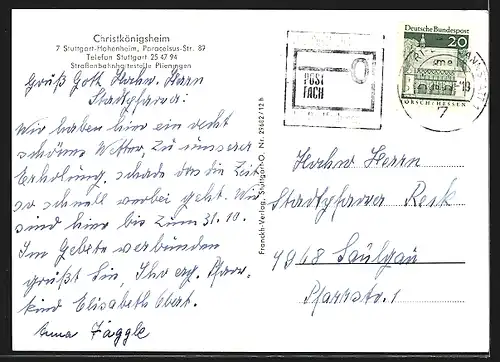 Christkönigsheim
7 Stuttgart-Hohenheim, Paracelsus-Str. 89
Telefon Stuttgart 25 47 94
Straßenbahnhaltestelle Plieningen
Grüß Gott Hochw. Herr
Stadtpfarrer!
Wir haben hier ein recht
schönes Wetter, zu unserer
Erholung, schade das die Zeit
so schnell vorbei geht. Wir
sind hier bis zum 31.10.
Im Gebete verbunden
grüßt Sie, Ihr erg. Pfarr-
kind Elisabeth Ebert.
Erna Zäggle
Franckh-Verlag, Stuttgart-O. Nr. 29682/12 h
POST
FACH
Deutsche Bundespost
20
LORSCH/HESSEN
13
7
Hochw Herrn
Stadtpfarrer Reck
7968 Saulgau
Pfarrstr. 1